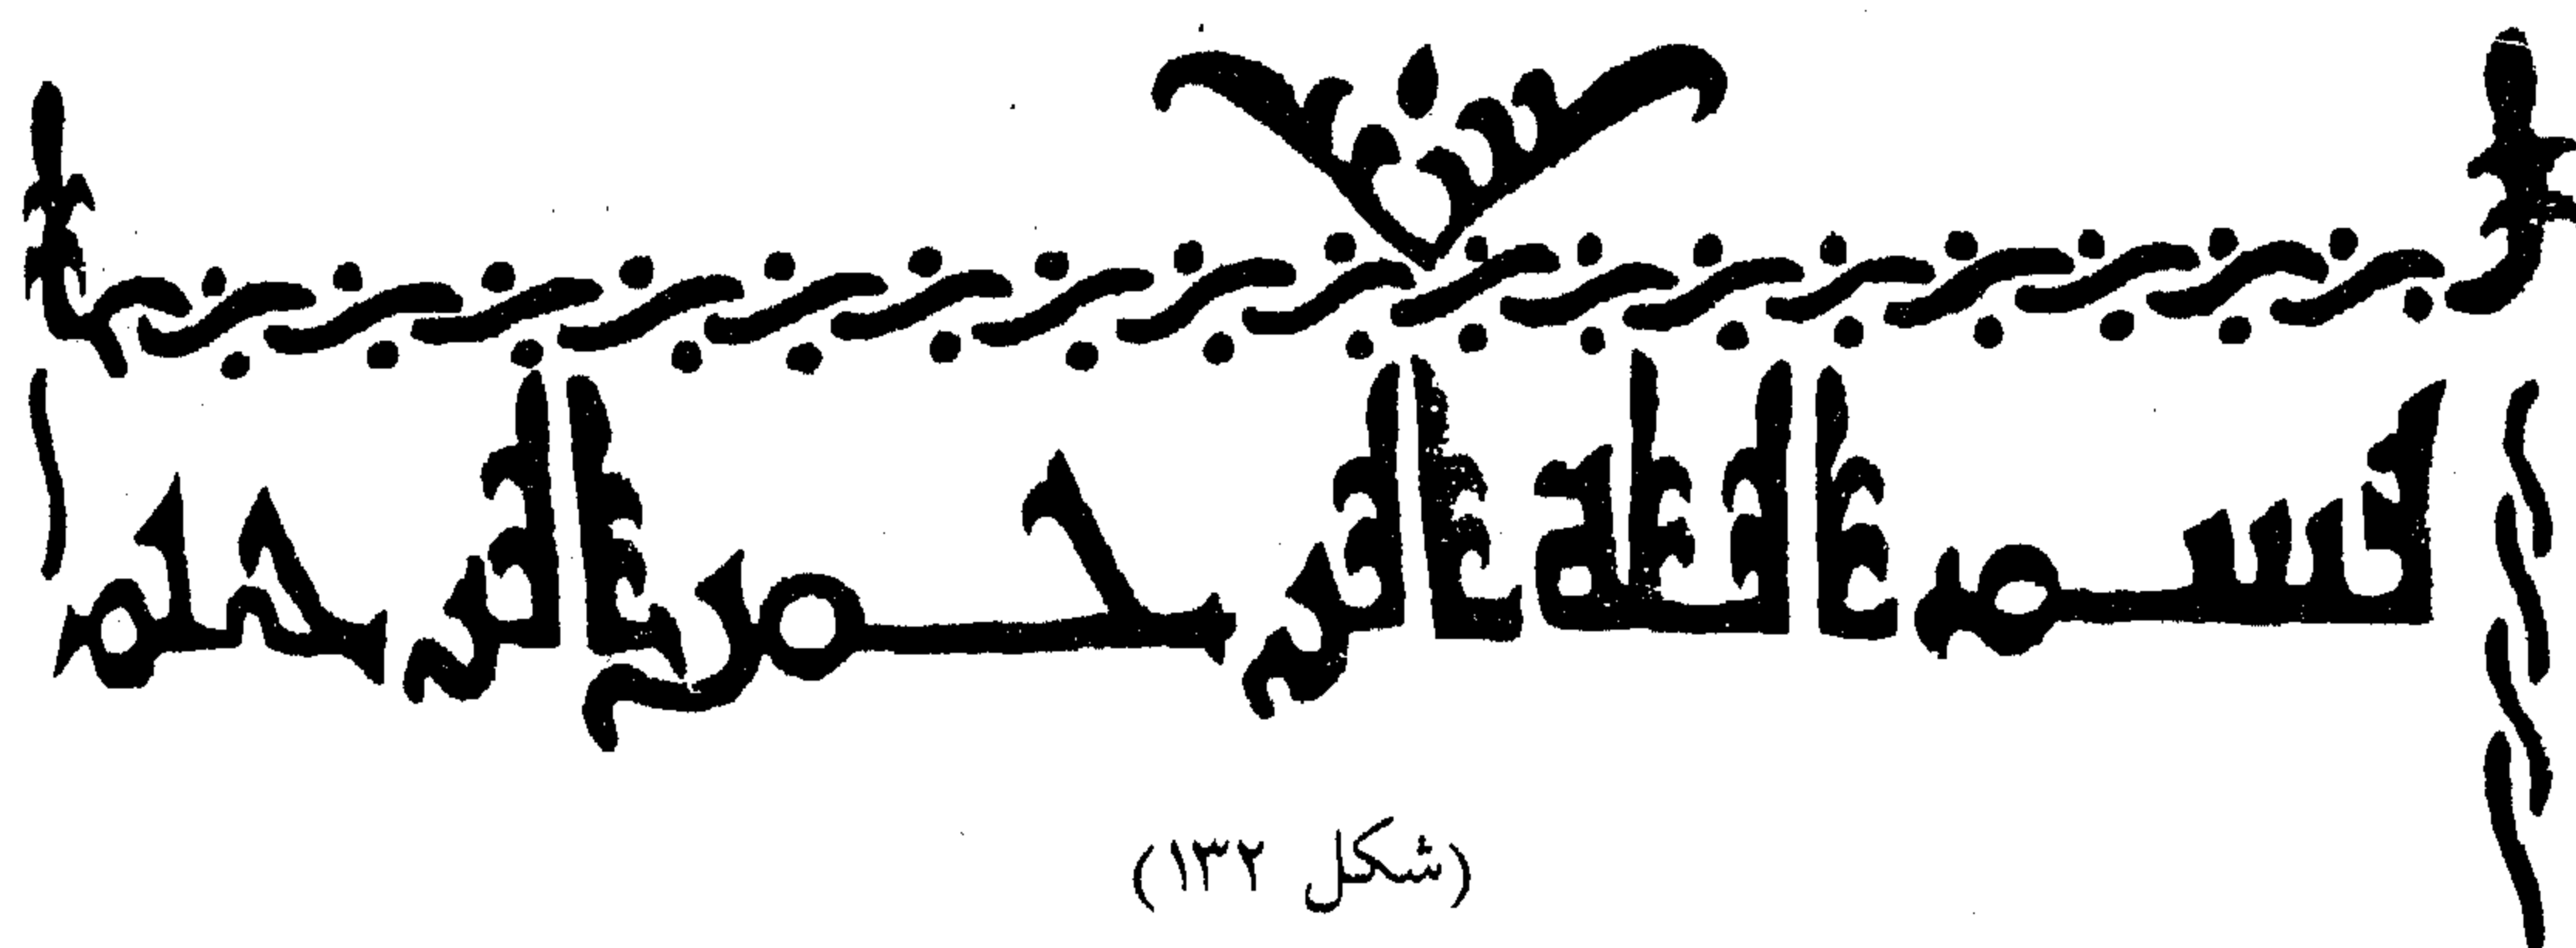 بسم الله الرحمن الرحيم
(شكل ١٣٢)